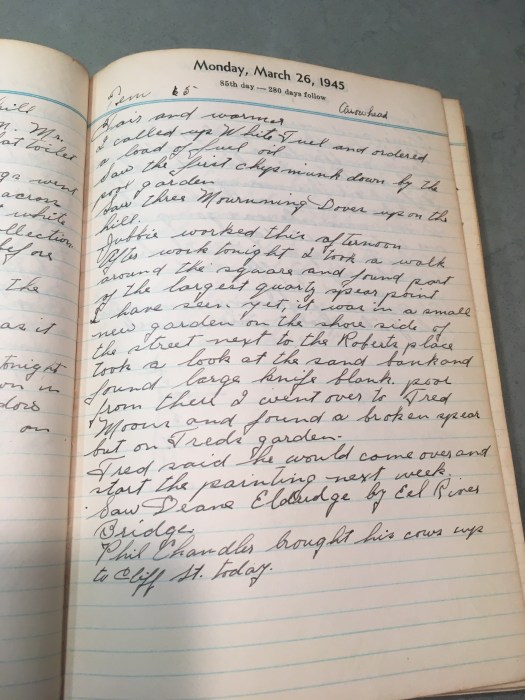 hill
n. Mr.
at Toiles
ga went
acron
white
llection
before
the
as it
tonight
own in
dows
on
Monday, March 26, 1945
85th day — 280 days follow
Tem 65 Arrowhead
Fair and warmer
I called up White Fuel and ordered
a load of fuel oil
Saw the first chipmunk down by the
pool garden
Saw three Mournning Doves up on the
hill.
Jubbie worked this afternoon
After work tonight I took a walk
around the square and found part
of the largest quartz spear point
I have seen yet, it was in a small
new garden on the shore side of
the street next to the Roberts place
took a look at the sand bank and
found large knife blank. poor
from there I went over to Fred
Moons and found a broken spear
but on Freds garden.
Fred said he would come over and
start the painting next week.
Saw Deane Eldredge by Eel River
Bridge
Phil Chandler brought his cows up
to Cliff St. today.